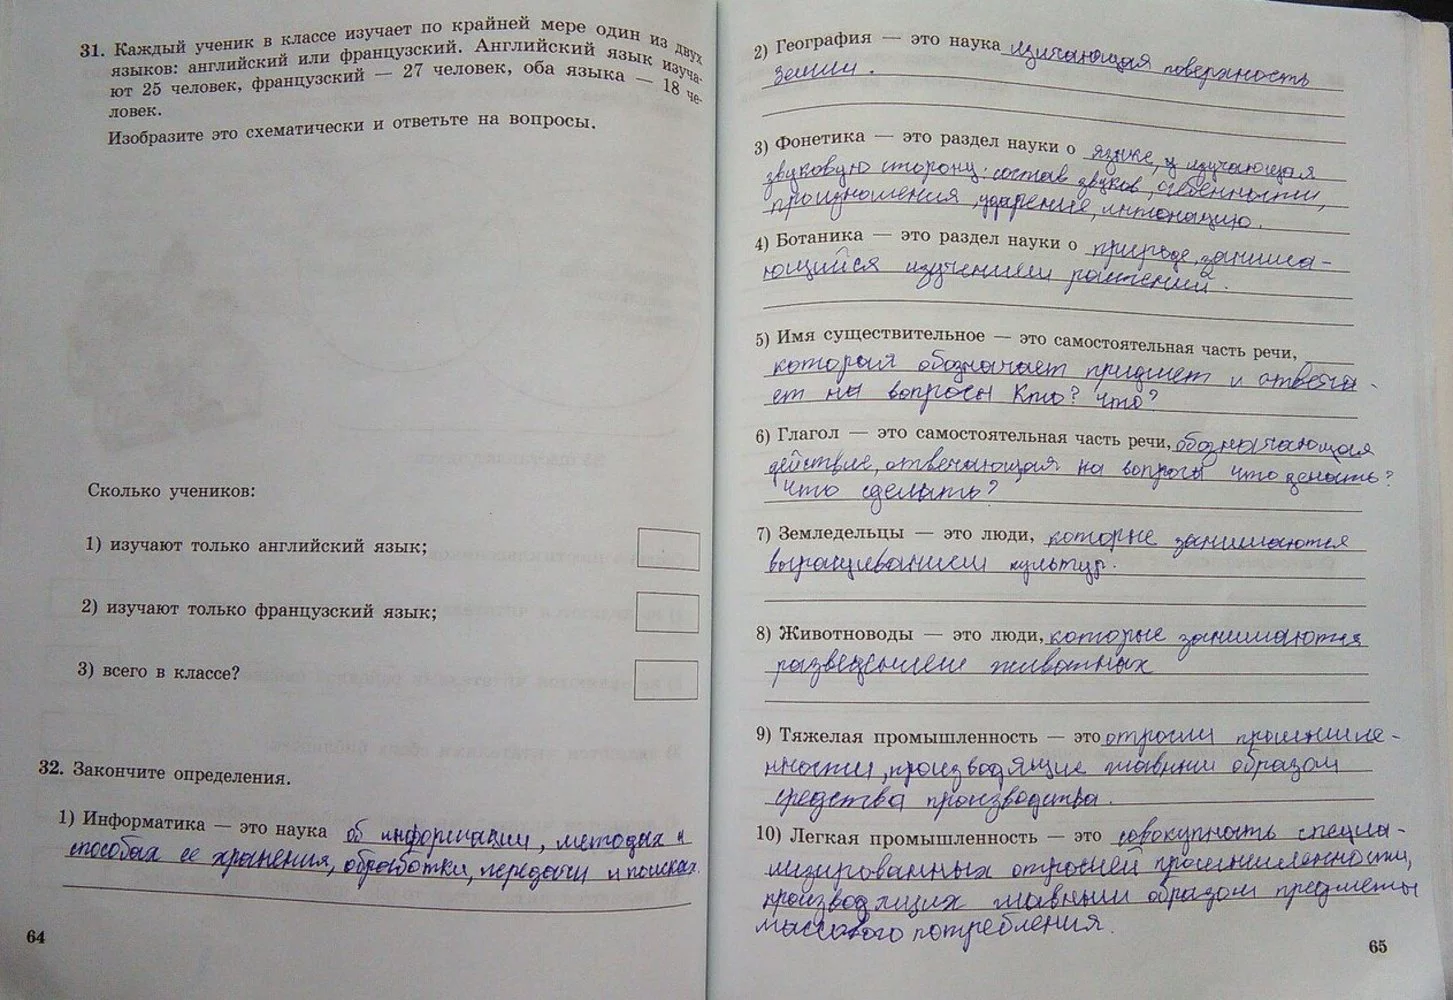 31. Каждый ученик в классе изучает по крайней мере один из двух
языков: английский или французский. Английский язык изуча-
ют 25 человек, французский — 27 человек, оба языка — 18 че-
ловек.
Изобразите это схематически и ответьте на вопросы.
Сколько учеников:
1) изучают только английский язык;
2) изучают только французский язык;
3) всего в классе?
32. Закончите определения.
1) Информатика — это наука об информации, методах и
способах ее хранения, обработки, передачи и поисках.
64
2) География — это наука изучающая поверхность
Земли.
3) Фонетика — это раздел науки о языке, изучающая
звуковую сторону: состав звуков,
произношения, ударение, интонацию.
4) Ботаника — это раздел науки о природе, занима-
ющийся изучением растений.
5) Имя существительное — это самостоятельная часть речи,
которая обозначает предмет и отвеча-
ет на вопросы Кто? Что?
6) Глагол — это самостоятельная часть речи, обозначающая
действие, отвечающая на вопросы что делать?
что сделать?
7) Земледельцы — это люди, которые занимаются
выращиванием культур.
8) Животноводы — это люди, которые занимаются
разведением животных
9) Тяжелая промышленность — это отрасли промышле-
нности, производящие главным образом
средства производства.
10) Легкая промышленность — это совокупность специа-
лизированных отраслей промышленности,
производящих главным образом предметы
массового потребления.
65